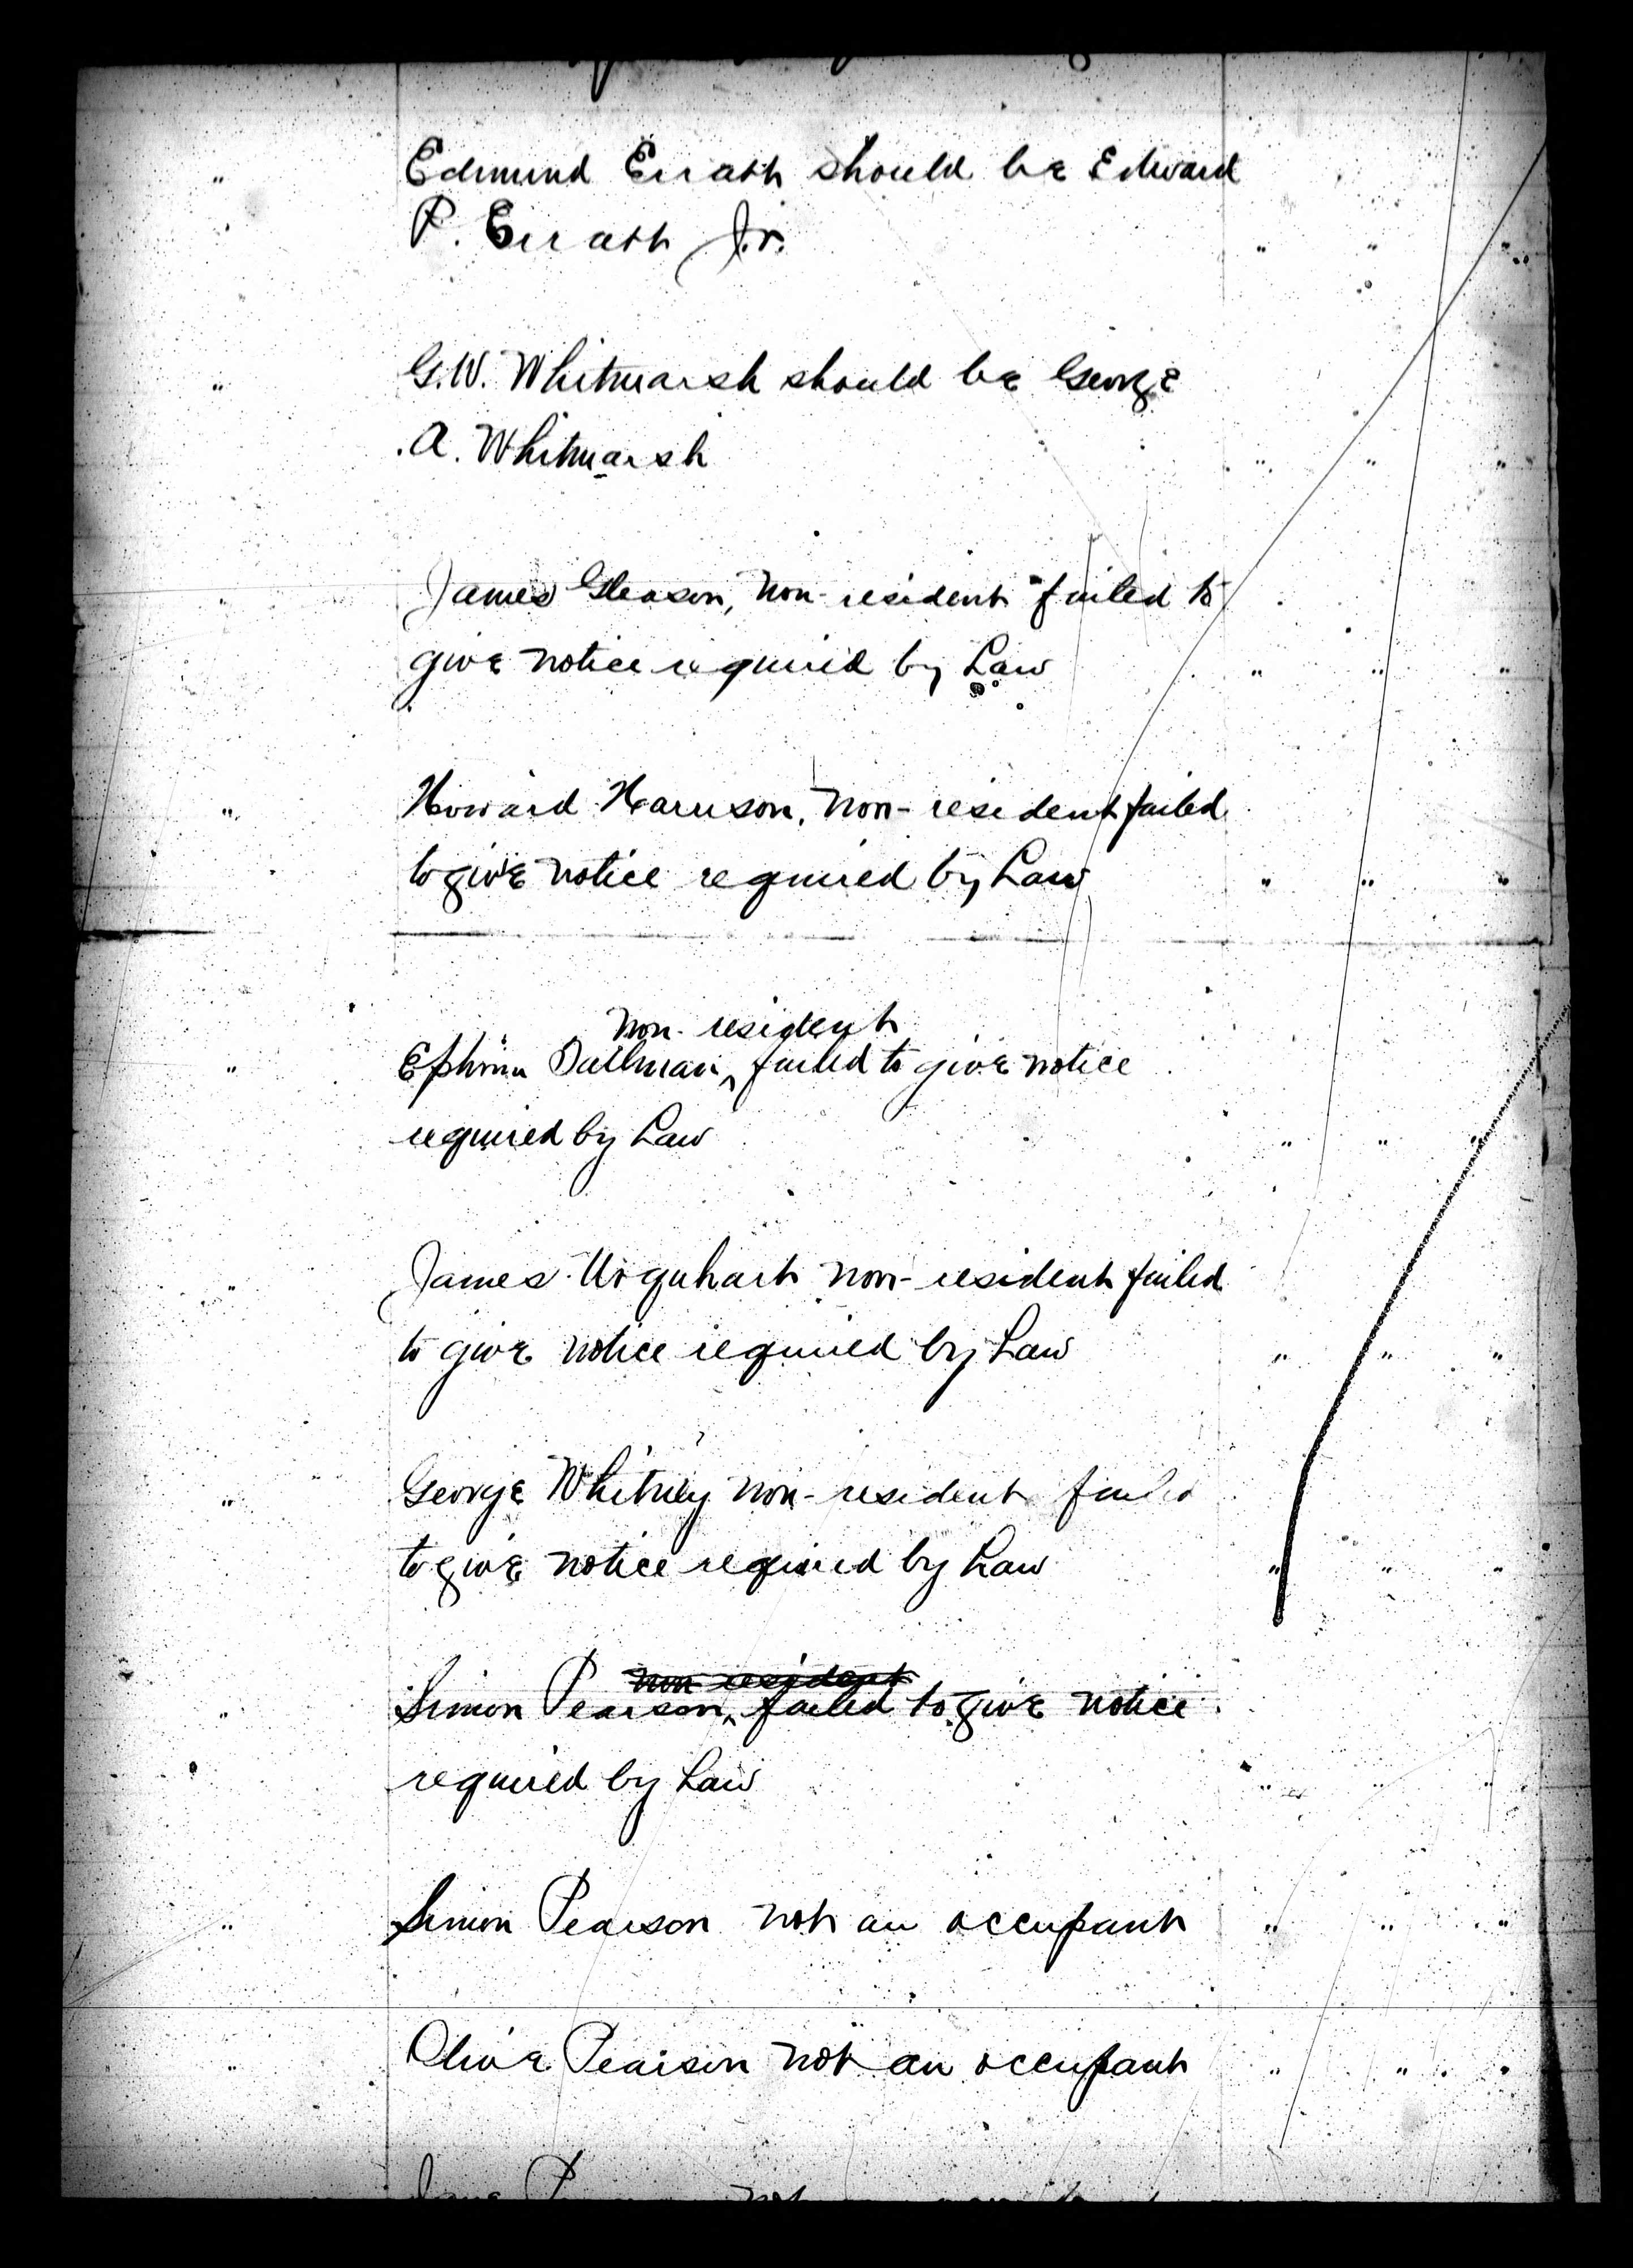 " Edmund Eirath should be Edward
P. Eirath Jr. " " "
" G.W. Whitmarsh should be George
A. Whitmarsh " " "
" James Gleason, non-resident failed to
give notice required by Law " " "
" Howard Harrison, non-resident failed
to give notice required by Law " " "
non-resident
" Ephriam ^ failed to give notice
required by Law " " "
" James Urquhart non-resident failed
to give notice required by Law " " "
" George Whitney non-resident failed
to give notice required by Law " " "
non resident
" Simon Pearson, ^ failed to give notice
required by Law " " "
" Simon Pearson not an occupant " " "
" Olive Pearson not an occupant " " "